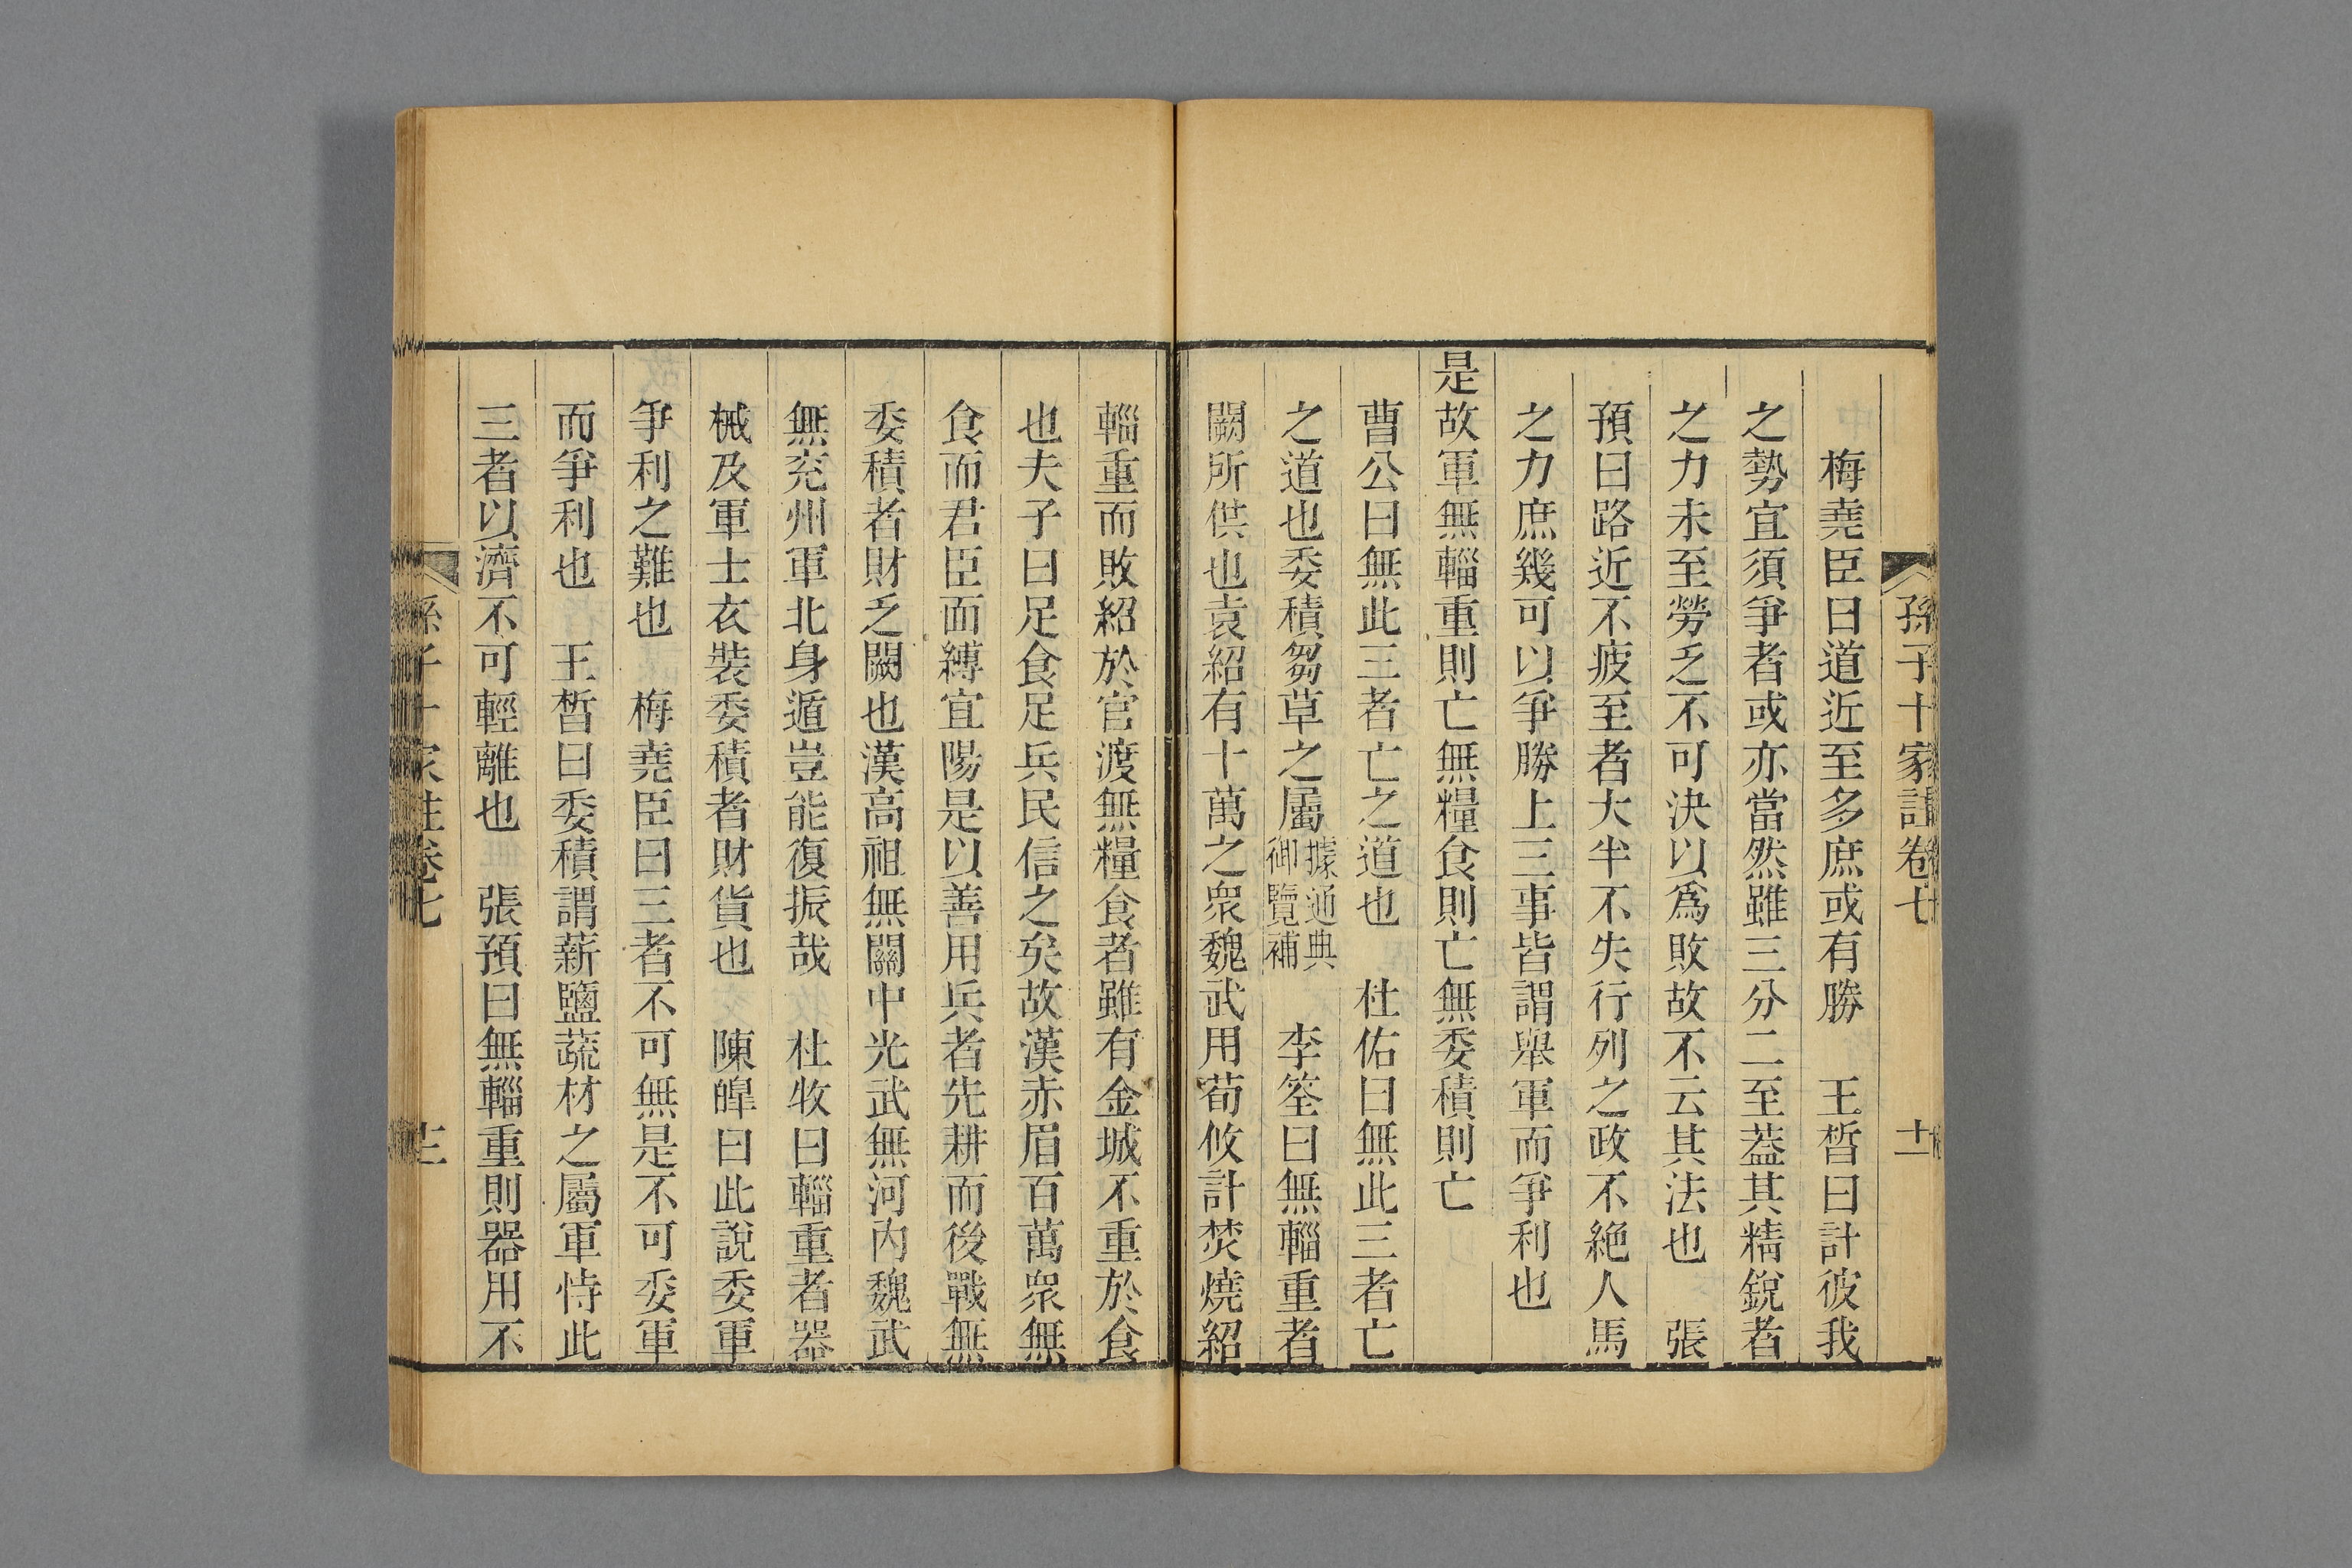 孫子十家註卷七 十一
梅堯臣曰道近至多庶或有勝 王晳曰計彼我
之勢宜須爭者或亦當然雖三分二至葢其精銳者
之力未至勞乏不可決以爲敗故不云其法也 張
預曰路近不疲至者大半不失行列之政不絶人馬
之力庶幾可以爭勝上三事皆謂舉軍而爭利也
是故軍無輜重則亡無糧食則亡無委積則亡
曹公曰無此三者亡之道也 杜佑曰無此三者亡
之道也委積芻草之屬據通典御覽補 李筌曰無輜重者
闕所供也袁紹有十萬之衆魏武用荀攸計焚燒紹
輜重而敗紹於官渡無糧食者雖有金城不重於食
也夫子曰足食足兵民信之矣故漢赤眉百萬衆無
食而君臣面縛宜陽是以善用兵者先耕而後戰無
委積者財乏闕也漢高祖無關中光武無河内魏武
無兖州軍北身遁豈能復振哉 杜牧曰輜重者器
械及軍士衣裝委積者財貨也 陳皥曰此說委軍
爭利之難也 梅堯臣曰三者不可無是不可委軍
而爭利也 王晳曰委積謂薪鹽蔬材之屬軍恃此
三者以濟不可輕離也 張預曰無輜重則器用不
孫子十家註卷七